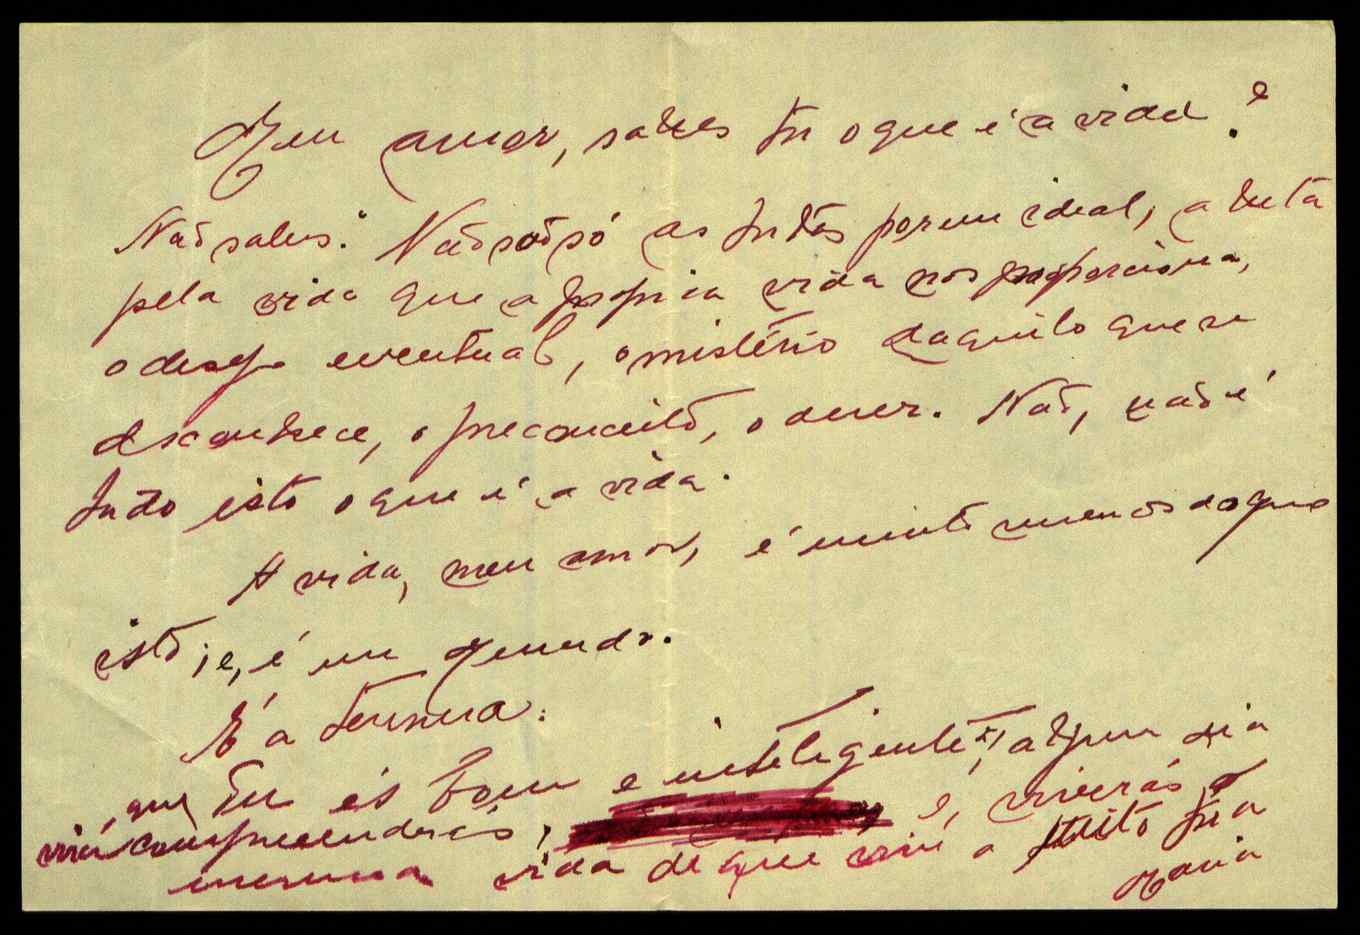 Meu amor, sabes tu o que é a vida?
Não sabes. Não são só as lutas por um ideal, a luta
pela vida que a própria vida nos proporciona,
o desejo eventual, o mistério daquilo que se
desconhece, o preconceito, o dever. Não, não é
tudo isto o que é a vida.
A vida, meu amor, é muito menos do que
isto, e, é um mundo.
É a ternura.
que Tu és bom e inteligente, algum dia
compreenderás, e, viverás
mesma vida de que vivi a tua
Maria